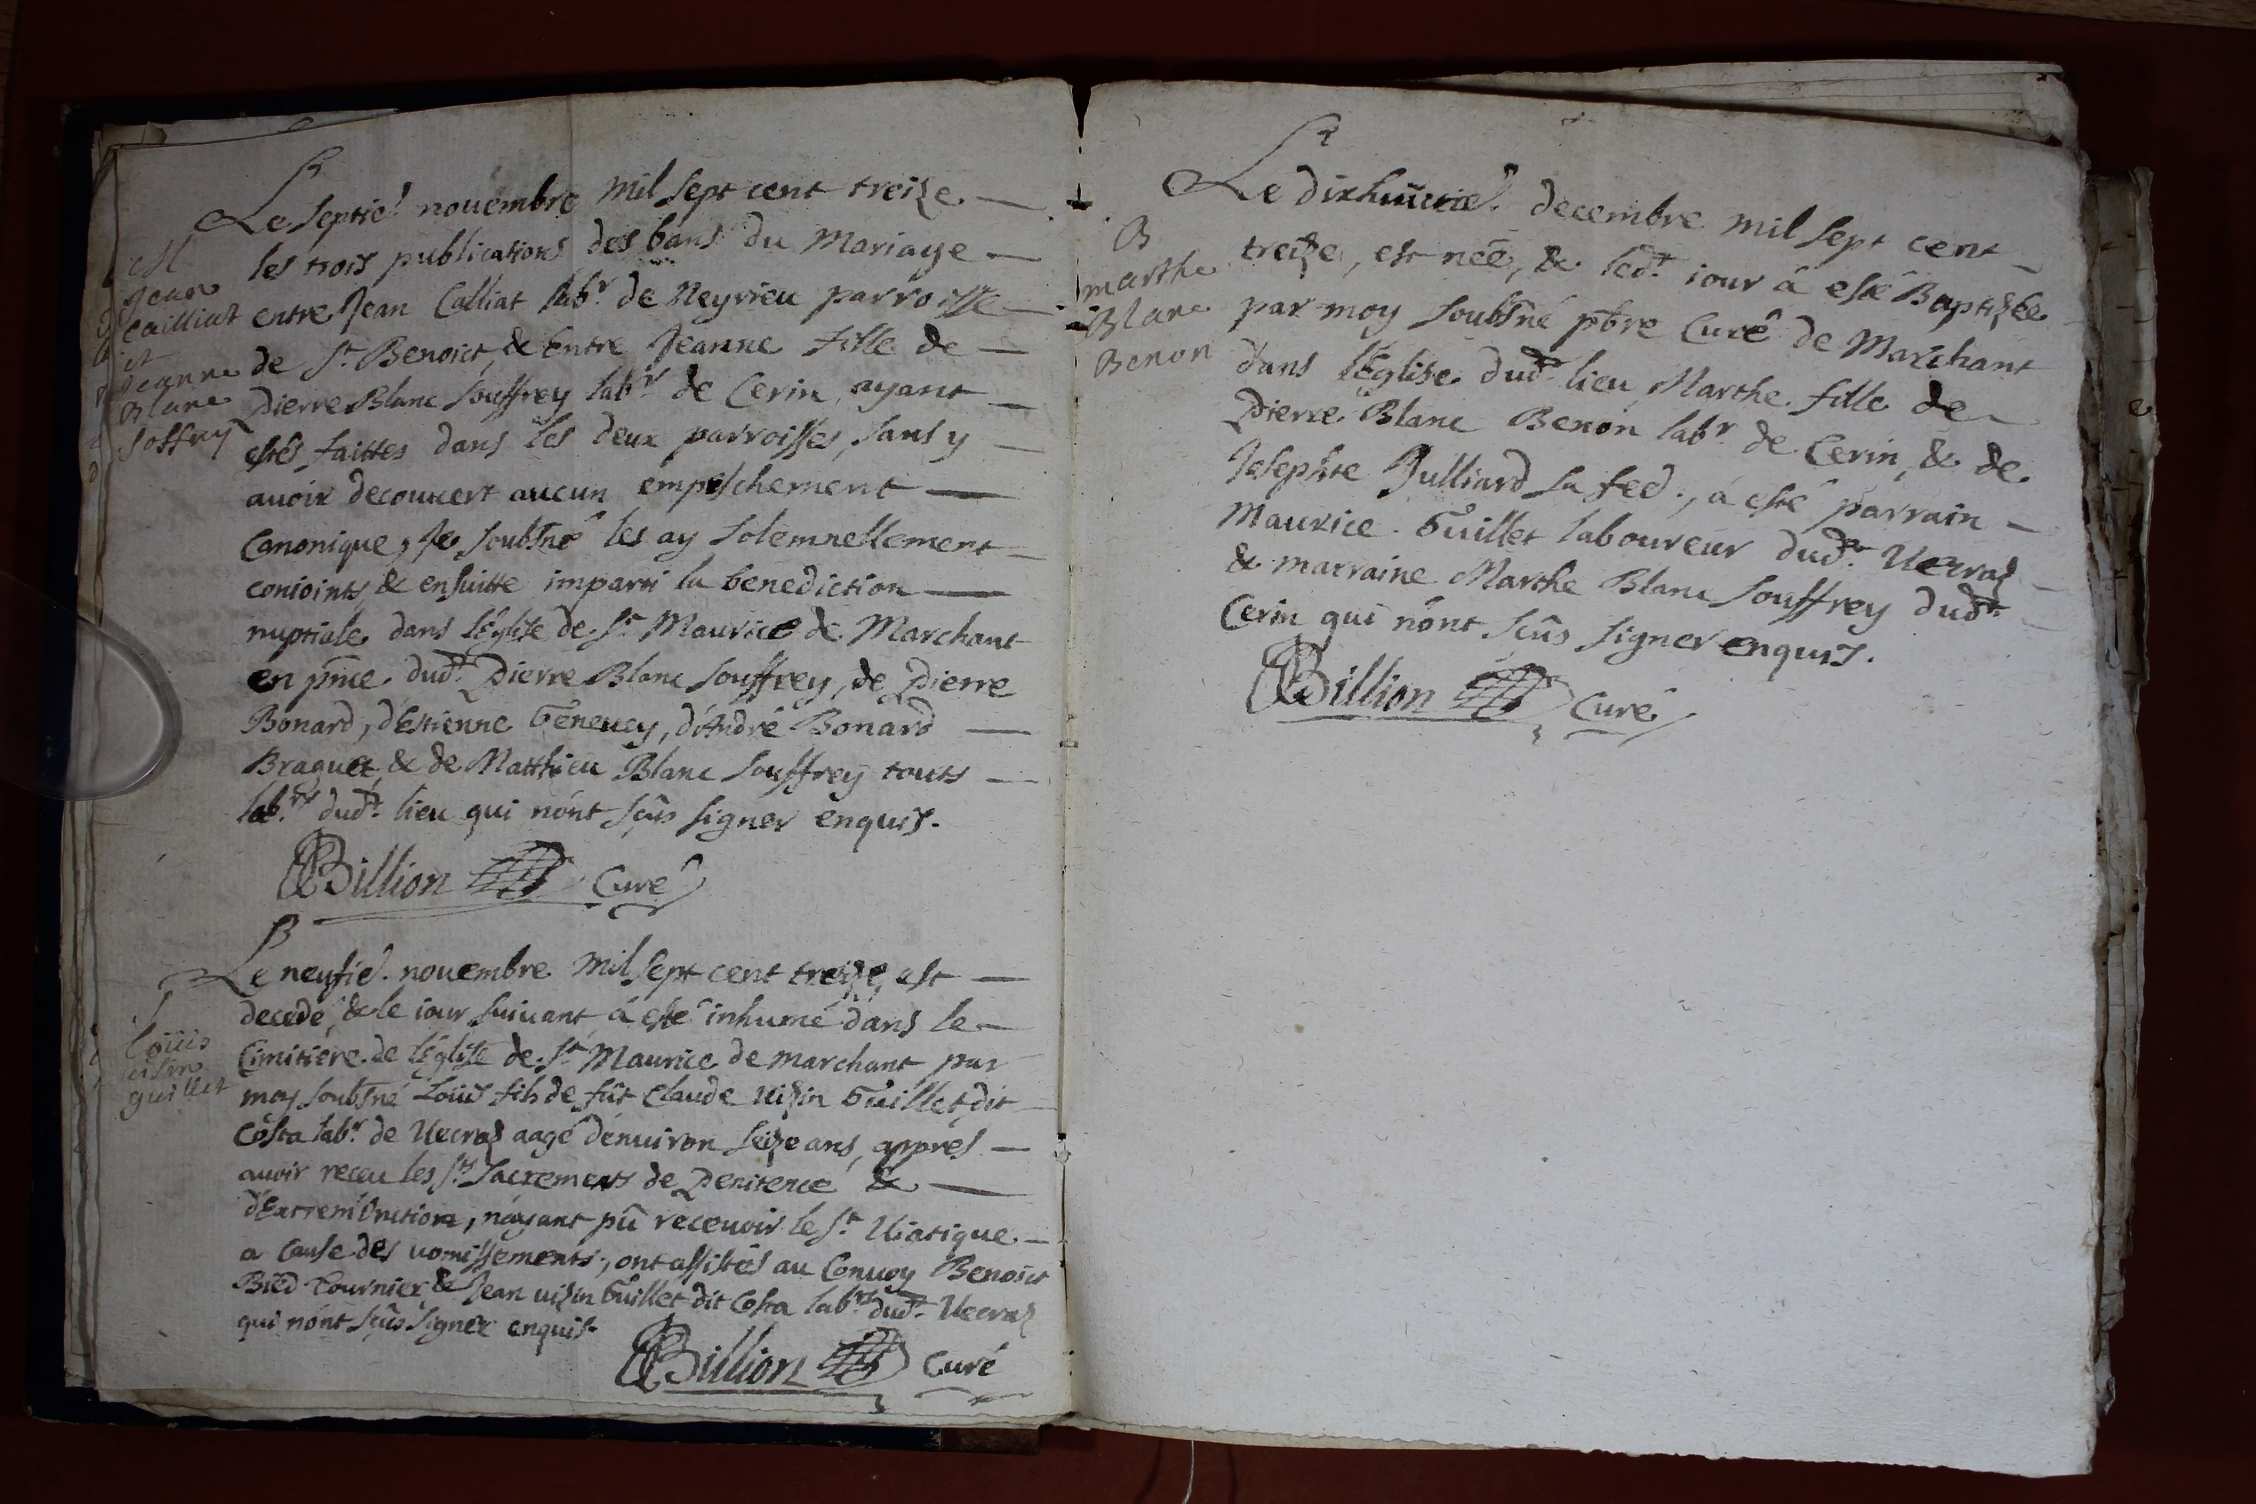 Le septie. novembre mil sept cent treize
M
Jean
cailliat
et
Jeanne
Blanc
Soffrey
les trois publications des bans du Mariage
entre Jean Calliat labr. de Neyrieu parroisse
de St. Benoict, & entre Jeanne fille de
Pierre Blanc Souffrey labr. de Cerin, ayant
estés faittes dans les deux parroisses, sans y
avoir decouvert aucun empeschement
Canonique, Je soubsné les ay solemnellement
conioints, & ensuitte imparti la benediction
nuptiale dans l'Eglise de St. Maurice de Marchant
en pnce. dudt. Pierre Blanc Souffrey, de Pierre
Bonard, d'Estienne Genevey, d'André Bonard
Braguet & de Matthieu Blanc Souffrey touts
labrs. dudt. lieu qui n'ont sçûs signer enquis.
Billion Curé
Le neufie. novembre mil sept cent treize, est
decedé, & le iour suivant á esté inhumé dans le
Loüis
guillet
Cimitiére de l'église de St. Maurice de marchant par
moy soubsné Loüis fils de fût Claude vizin Guillet, dit
Costa labr. de Vecraz aagé d'environ seize ans, apprés
avoir receu les Sts. Sacrements de Penitence &
d'Extrem'Onction, n'ayant pû recevoir le St. Viatique
a cause des vomissements, ont assistés au Convoy Benoict
Bied Tournier & Jean vizin Guillet dit Costa labrs. dudt. Vecraz
qui n'ont sçûs signer enquis.
Billion Curé
Le dixhuictie. decembre mil sept cent
B
marthe
Blanc
Benon
treize, est née, & ledt. iour á esté Baptizée
par moy soubsné pbre Curé de Marchant
dans l'Eglise dudt. lieu Marthe fille de
Pierre Blanc Benon labr. de Cerin, & de
Josephte Julliard sa fed., á esté parrain
Maurice Guillet laboureur dudt. Vecraz
& marraine Marthe Blanc Souffrey dudt.
Cerin qui n'ont sçûs signer enquis.
Billion Curé